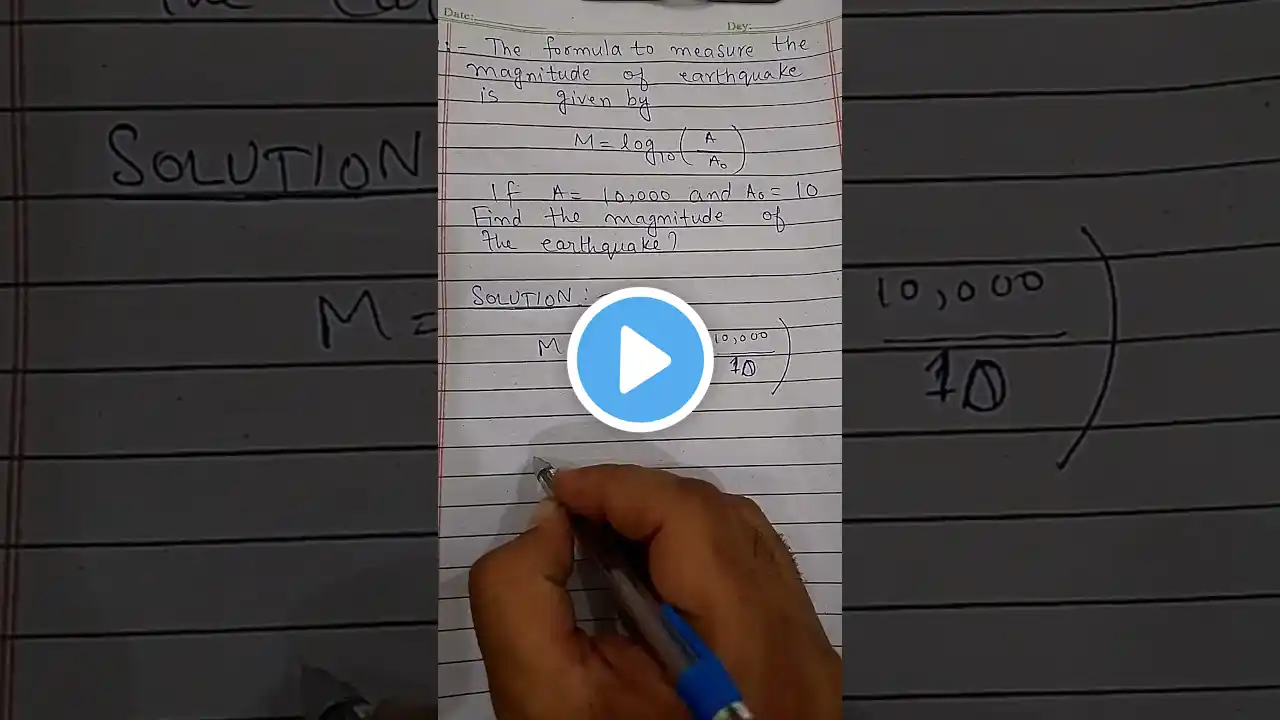 Date:
Day:
:- The formula to measure the
magnitude of earthquake
is given by
M = log₁₀ (A/A₀)
If A = 10,000 and A₀ = 10
Find the magnitude of
the earthquake?
SOLUTION :-
M
10,000
10
SOLUTION
M =
10,000
10